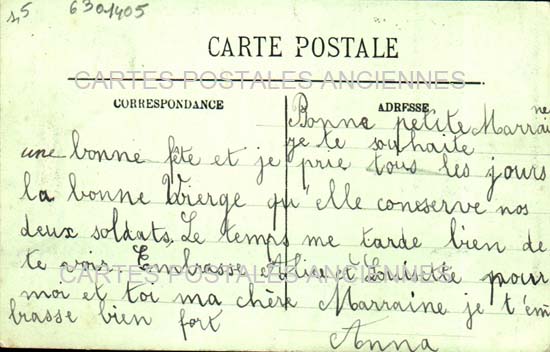 45 6301405
CARTE POSTALE
CARTES POSTALES ANCIENNES
CORRESPONDANCE ADRESSE
Bonne petite Marraine
je te souhaite
une bonne fête et je prie tous les jours
la bonne Vierge qu'elle coneserve nos
deux soldats. Le temps me tarde bien de
te voir. Embrasse et à pour
CARTES POSTALES ANCIENNES
moi et toi ma chère Marraine je t'em
brasse bien fort
Anna